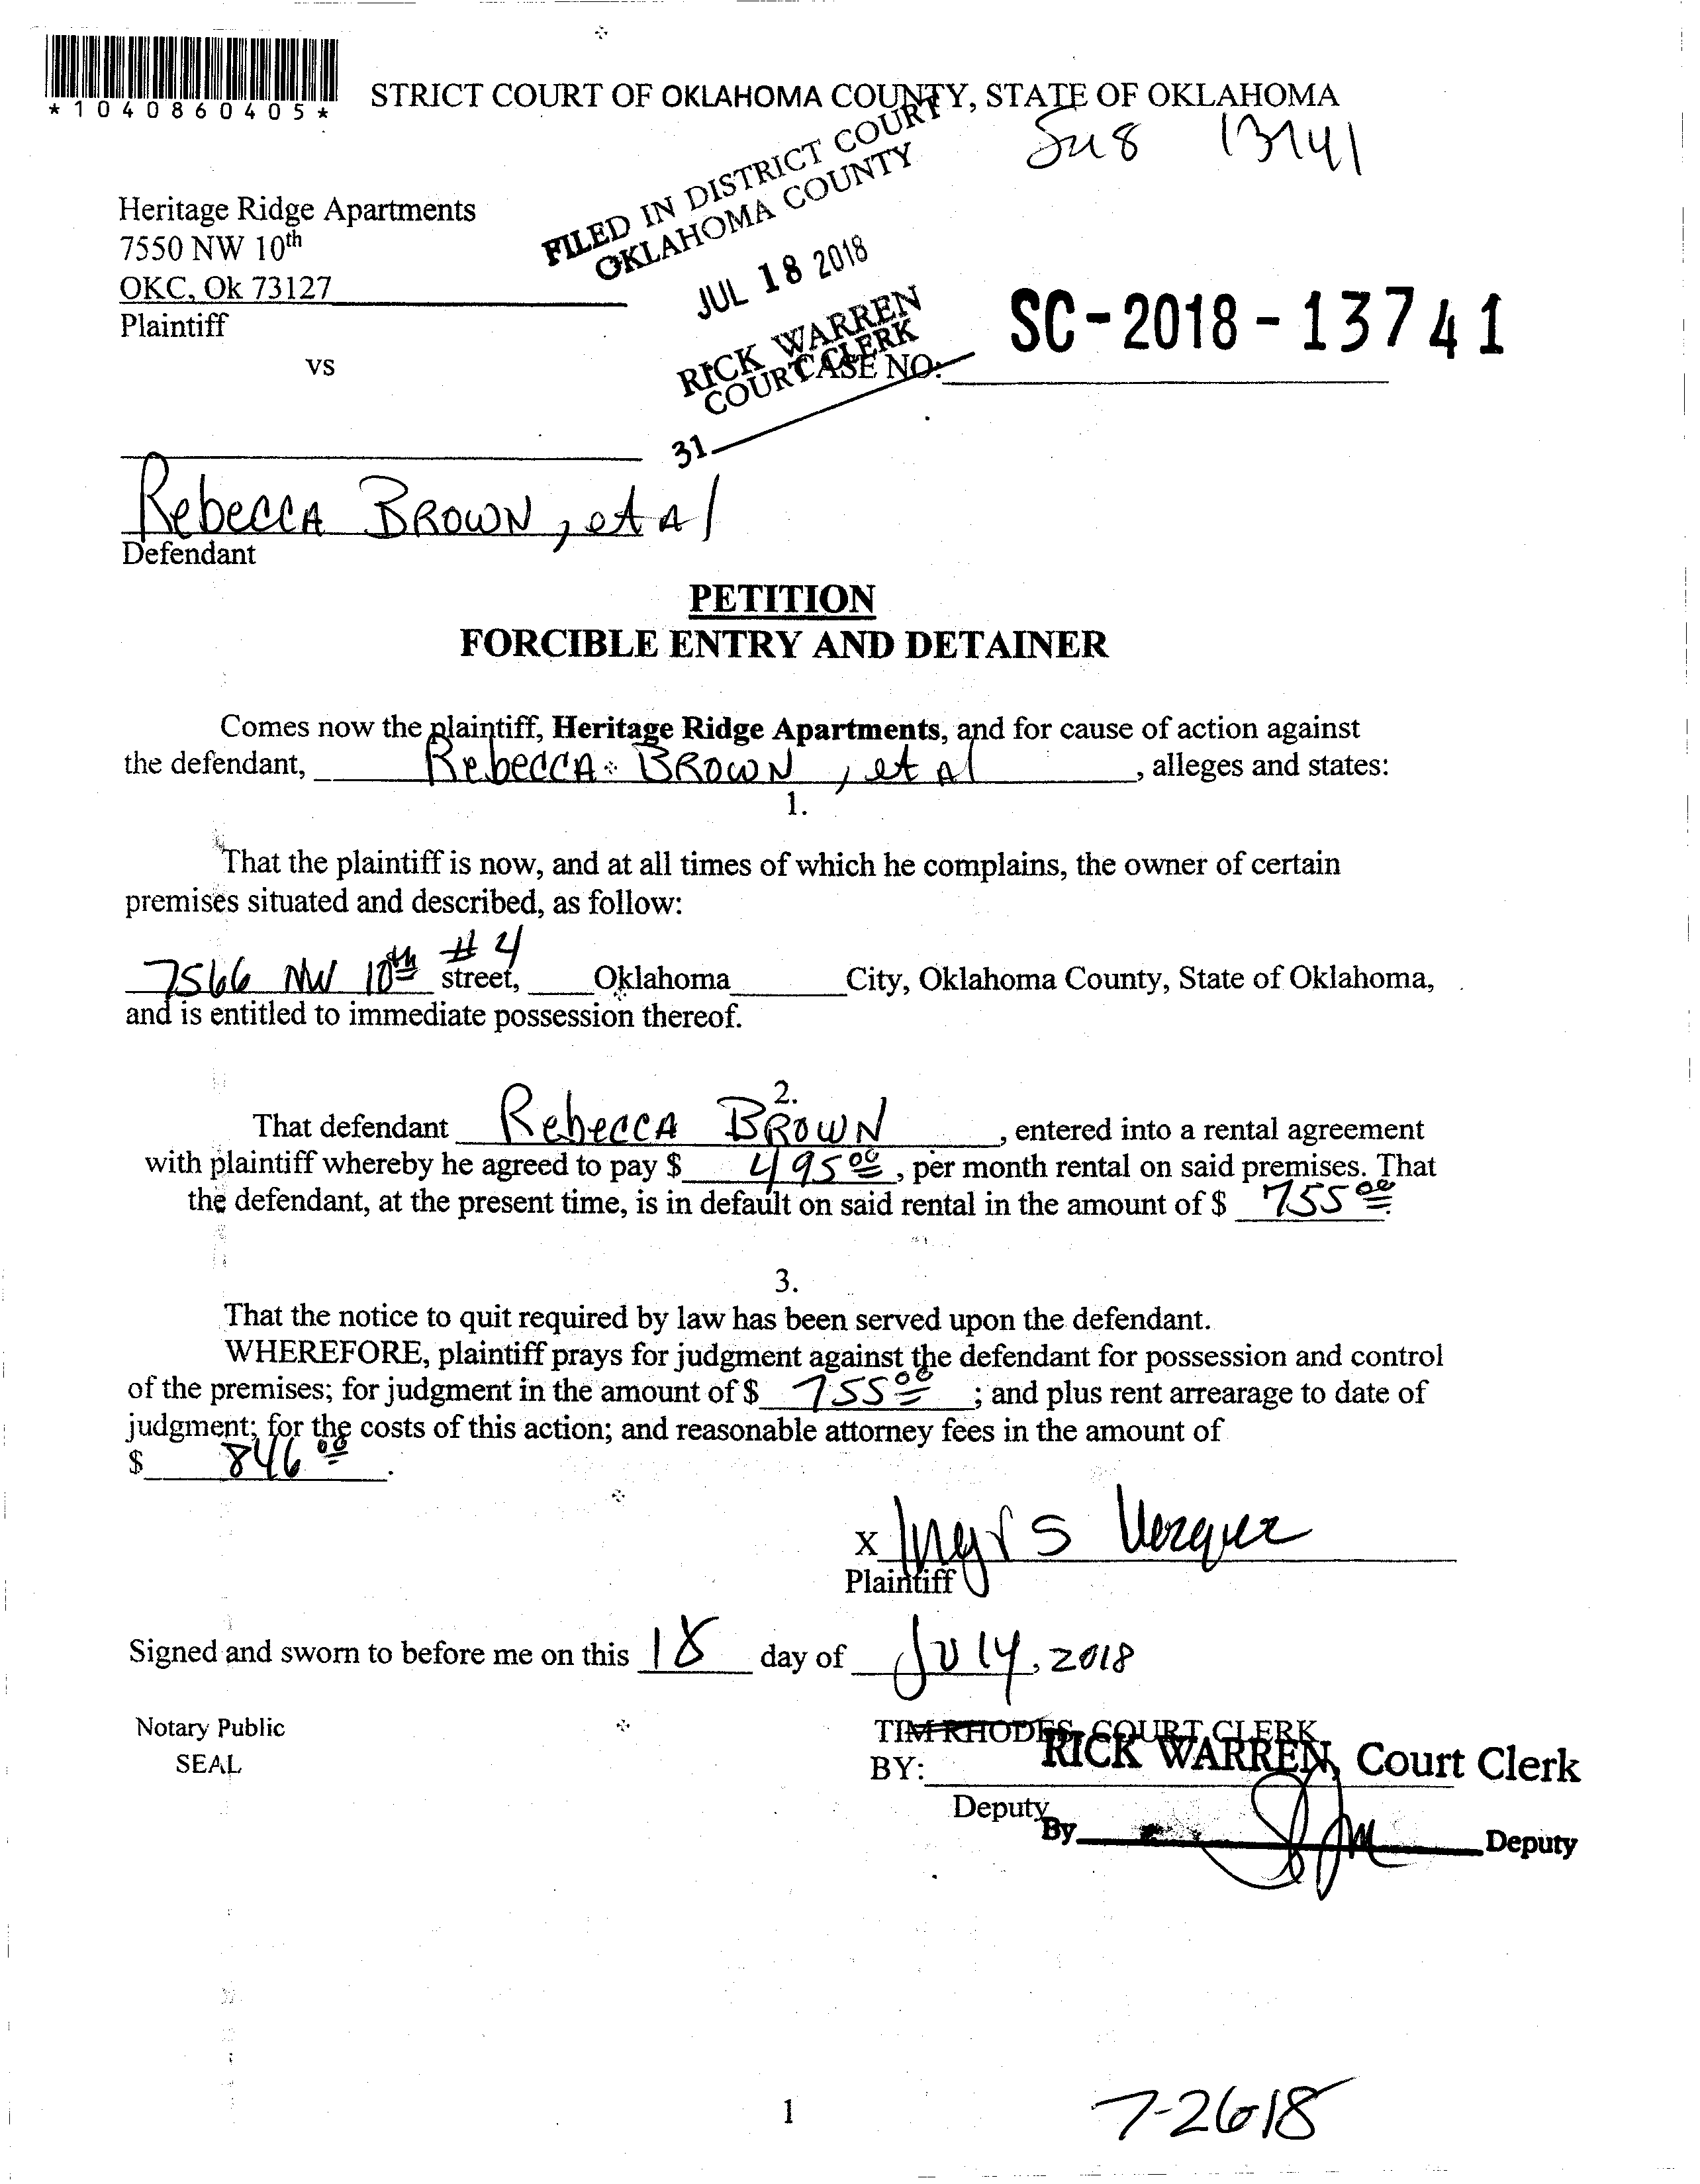 *1040860405*
STRICT COURT OF OKLAHOMA COUNTY, STATE OF OKLAHOMA
FILED IN DISTRICT COURT
OKLAHOMA COUNTY
JUL 18 2018
RICK WARREN
COURT CLERK
31
Heritage Ridge Apartments
7550 NW 10th
OKC, Ok 73127
Plaintiff
vs
CASE NO: SC-2018-13741
Rebecca Brown, et al
Defendant
PETITION
FORCIBLE ENTRY AND DETAINER
Comes now the plaintiff, Heritage Ridge Apartments, and for cause of action against
the defendant, Rebecca Brown, et al, alleges and states:
1.
That the plaintiff is now, and at all times of which he complains, the owner of certain
premises situated and described, as follow:
7566 NW 10th #4 street, Oklahoma City, Oklahoma County, State of Oklahoma,
and is entitled to immediate possession thereof.
2.
That defendant Rebecca Brown, entered into a rental agreement
with plaintiff whereby he agreed to pay $ 495 00, per month rental on said premises. That
the defendant, at the present time, is in default on said rental in the amount of $ 755 00.
3.
That the notice to quit required by law has been served upon the defendant.
WHEREFORE, plaintiff prays for judgment against the defendant for possession and control
of the premises; for judgment in the amount of $ 755 00; and plus rent arrearage to date of
judgment; for the costs of this action; and reasonable attorney fees in the amount of
$ 846 00.
X
Plaintiff
Signed and sworn to before me on this 18 day of July, 2018
Notary Public
SEAL
TIM RHODES, COURT CLERK
RICK WARREN, Court Clerk
BY:
Deputy
By Deputy
1
7-26-18